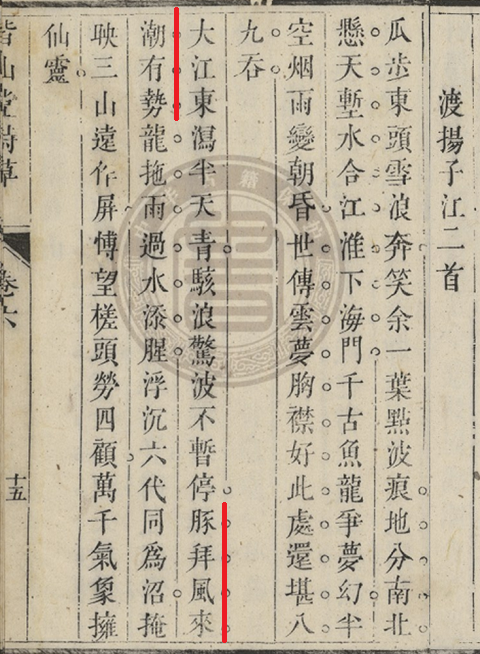 渡揚子江二首
瓜歩東頭雪浪奔笑余一葉點波痕地分南北
懸天塹水合江淮下海門千古魚龍爭夢幻半
空烟雨變朝昏世傳雲夢胸襟好此處還堪八
九吞
大江東瀉半天青駭浪驚波不暫停豚拜風來
潮有勢龍拖雨過水添腥浮沉六代同爲沼掩
映三山遠作屏愽望槎頭勞四顧萬千氣象擁
仙靈
山堂詩草
卷六
十五